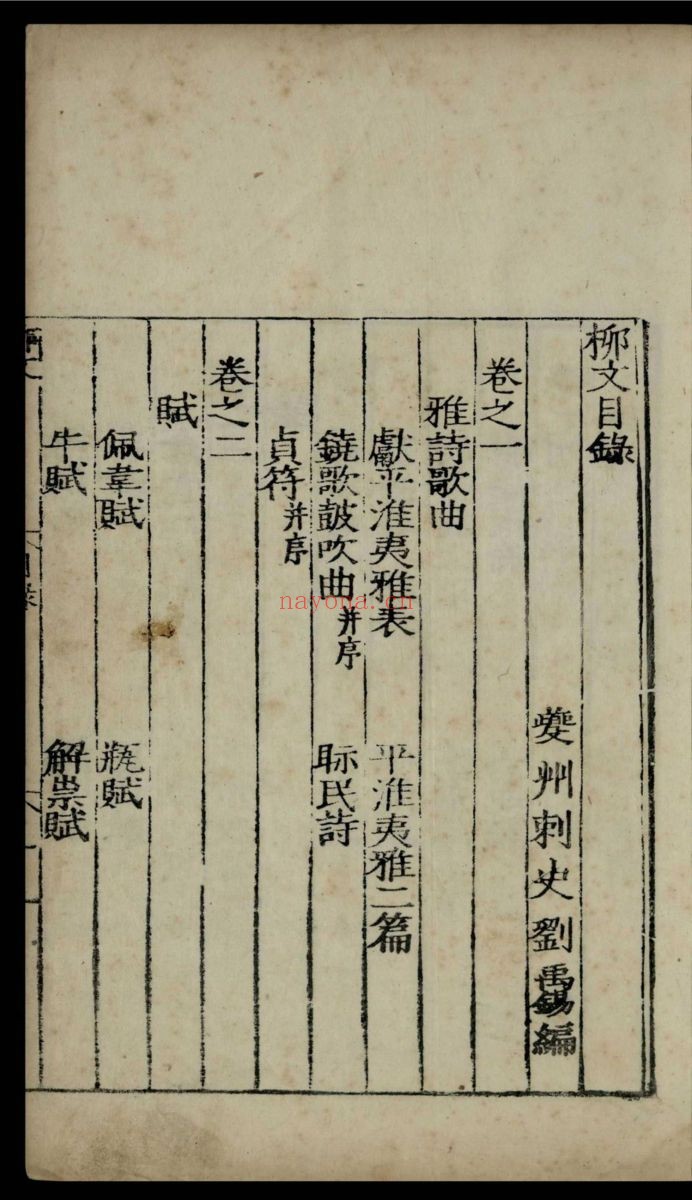 柳文目錄
夔州刺史劉禹錫編
卷之一
雅詩歌曲
獻平淮夷雅表 平淮夷雅二篇
鐃歌鼓吹曲并序 眎民詩
貞符并序
卷之二
賦
佩韋賦 瓶賦
牛賦 解祟賦
nayona.cn